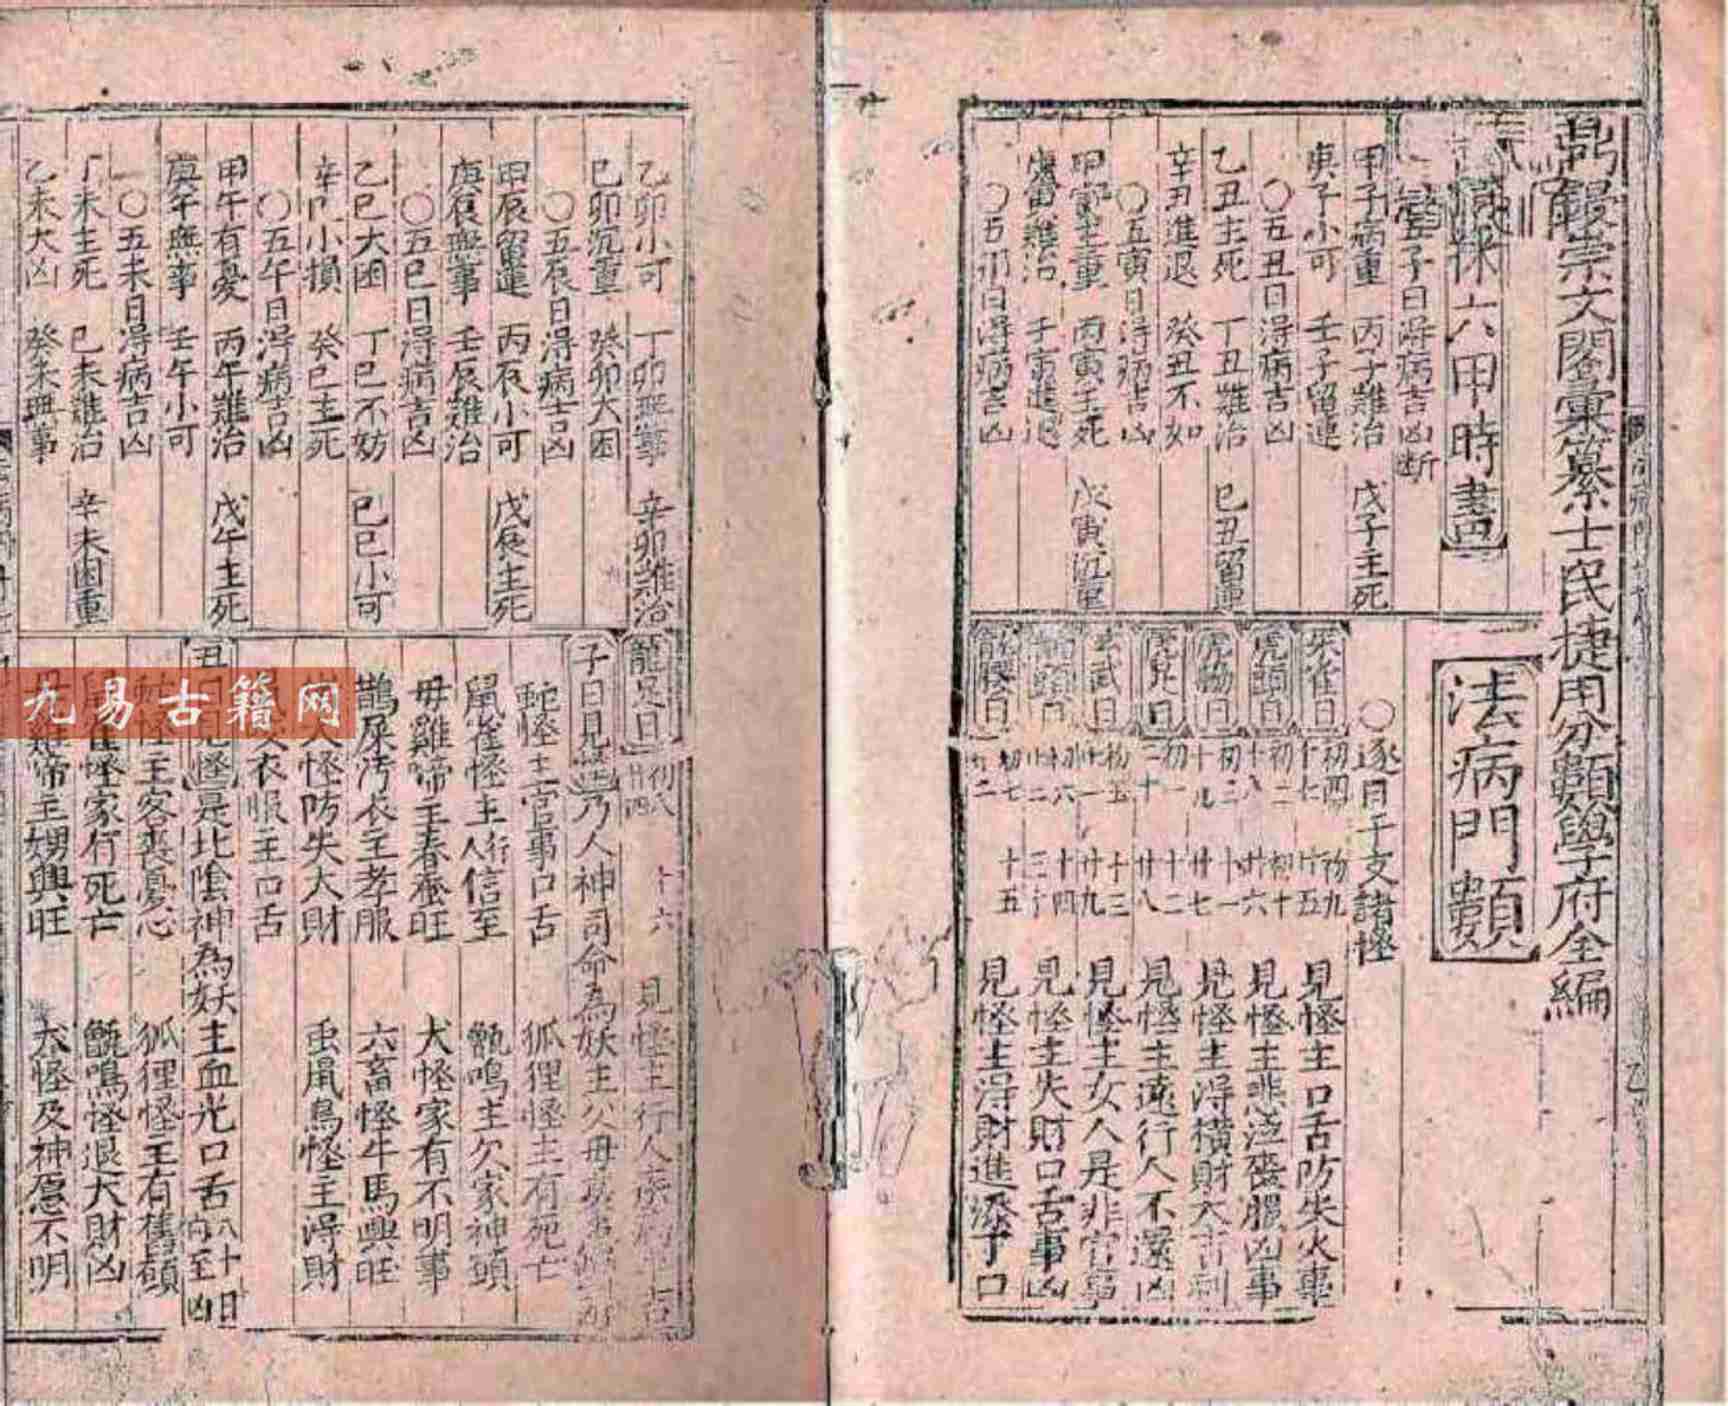 鼎鋟崇文閣彙纂士民捷用分類學府全編
六甲時書
五子日淂病吉凶断
甲子病重 丙子難治 戊子主死
庚子小可 壬子留連
○五丑日淂病吉凶
乙丑主死 丁丑難治 巳丑留連
辛丑進退 癸丑不如
○五寅日淂病吉凶
甲寅主重 丙寅主死 戊寅沉重
庚寅難治 壬寅進退
○五卯日淂病吉凶
法病門類
○逐日干支諸怪
朱雀日 初四 十七 初九 廿五 見怪主口舌防失火事
虎頭日 初二 十八 初十 廿六 見怪主悲泣喪服凶事
虎脇日 初三 十九 十一 廿七 見怪主淂横財大吉利
虎足日 初一 二十 十二 廿八 見怪主遠行人不還凶
玄武日 初五 廿一 十三 廿九 見怪主女人是非官事
初六 廿二 十四 三十 見怪主失財口舌事凶
初七 十五 見怪主淂財進添子口
乙卯小可 丁卯無事 辛卯難治
巳卯沉重 癸卯大困
○五辰日淂病吉凶
甲辰留連 丙辰小可 戊辰主死
庚辰無事 壬辰難治
○五巳日淂病吉凶
乙巳大困 丁巳不妨 巳巳小可
辛巳小損 癸巳主死
○五午日淂病吉凶
甲午有憂 丙午難治 戊午主死
庚午無事 壬午小可
○五未日淂病吉凶
丁未主死 巳未難治 辛未困重
乙未大凶 癸未無事
龍足日 初八 廿四 十六 見怪主行人
子日見怪乃人神司命為妖主父母
蛇怪主官事口舌 狐狸怪主有死亡
鼠雀怪主行人信至 甑鳴主欠家神願
母雞啼主春蚕旺 犬怪家有不明事
鵲屎汚衣主孝服 六畜怪牛馬興旺
犬怪防失大財 䖝鼠鳥怪主淂財
衣服主口舌
丑日見怪是北陰神為妖主血光口舌八十日内至凶
蛇怪主客喪憂心 狐狸怪主有舊願
鼠雀怪家有死亡 甑鳴怪退大財凶
母雞啼主甥興旺 犬怪及神愿不明
九易古籍网